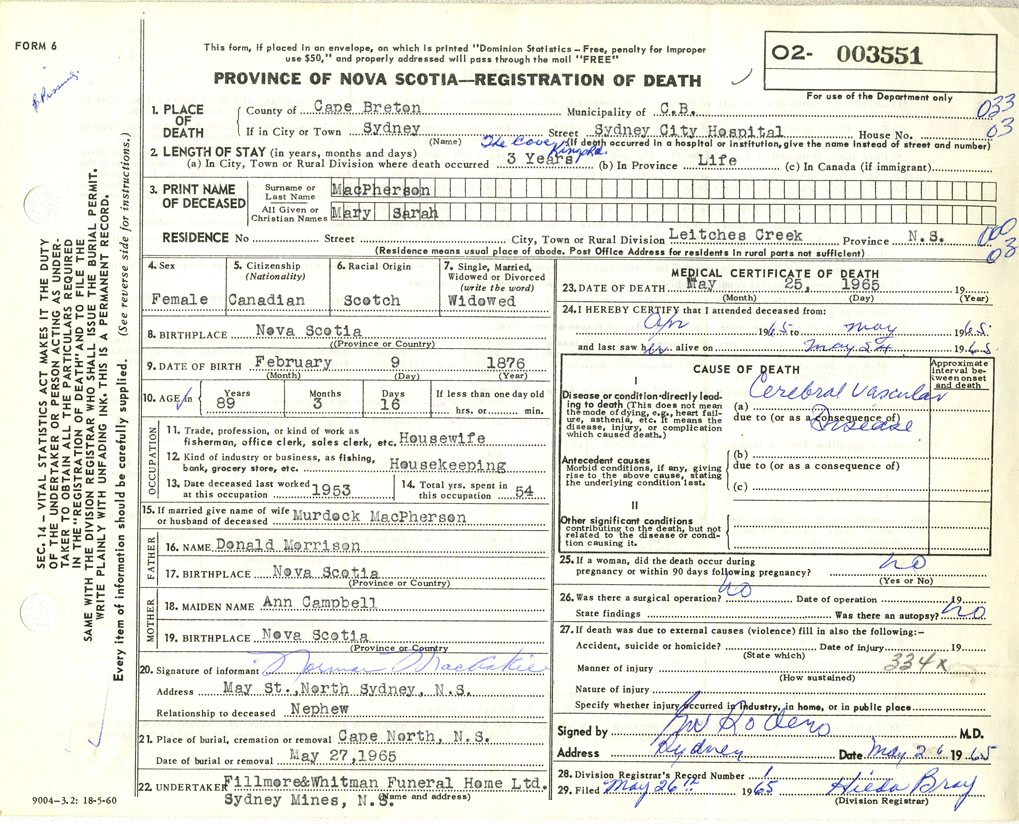 FORM 6
This form, if placed in an envelope, on which is printed "Dominion Statistics – Free, penalty for improper
use $50," and properly addressed will pass through the mail "FREE"
PROVINCE OF NOVA SCOTIA—REGISTRATION OF DEATH
02- 003551
For use of the Department only
033
03
1. PLACE OF DEATH
County of Cape Breton Municipality of C.B.
If in City or Town Sydney Street Sydney City Hospital House No.
(Name) (If death occurred in a hospital or institution, give the name instead of street and number)
The Cove
2. LENGTH OF STAY (in years, months and days)
(a) In City, Town or Rural Division where death occurred 3 Years (b) In Province Life (c) In Canada (if immigrant)
3. PRINT NAME OF DECEASED
Surname or Last Name MacPherson
All Given or Christian Names Mary Sarah
RESIDENCE No Street City, Town or Rural Division Leitches Creek Province N.S.
(Residence means usual place of abode. Post Office Address for residents in rural parts not sufficient)
000
03
4. Sex Female
5. Citizenship (Nationality) Canadian
6. Racial Origin Scotch
7. Single, Married, Widowed or Divorced (write the word) Widowed
8. BIRTHPLACE Nova Scotia
(Province or Country)
9. DATE OF BIRTH February 9 1876
(Month) (Day) (Year)
10. AGE Years 89 Months 3 Days 16 If less than one day old hrs. or min.
OCCUPATION
11. Trade, profession, or kind of work as
fisherman, office clerk, sales clerk, etc. Housewife
12. Kind of industry or business, as fishing,
bank, grocery store, etc. Housekeeping
13. Date deceased last worked at this occupation 1953
14. Total yrs. spent in this occupation 54
15. If married give name of wife or husband of deceased Murdock MacPherson
FATHER
16. NAME Donald Morrison
17. BIRTHPLACE Nova Scotia
(Province or Country)
MOTHER
18. MAIDEN NAME Ann Campbell
19. BIRTHPLACE Nova Scotia
(Province or Country)
20. Signature of informant Norman
Address May St., North Sydney, N.S.
Relationship to deceased Nephew
21. Place of burial, cremation or removal Cape North, N.S.
Date of burial or removal May 27, 1965
22. UNDERTAKER Fillmore&Whitman Funeral Home Ltd.
Sydney Mines, N.S. (Name and address)
MEDICAL CERTIFICATE OF DEATH
23. DATE OF DEATH May 25, 1965 19
(Month) (Day) (Year)
24. I HEREBY CERTIFY that I attended deceased from:
Apr 1965 to May 1965
and last saw her alive on May 24 1965
CAUSE OF DEATH
Approximate interval between onset and death
I
Disease or condition directly leading to death (This does not mean the mode of dying, e.g., heart failure, asthenia, etc. It means the disease, injury, or complication which caused death.)
(a) Cerebral Vascular
due to (or as a consequence of)
Disease
Antecedent causes
Morbid conditions, if any, giving rise to the above cause, stating the underlying condition last.
(b)
due to (or as a consequence of)
(c)
II
Other significant conditions
contributing to the death, but not related to the disease or condition causing it.
25. If a woman, did the death occur during
pregnancy or within 90 days following pregnancy? no
(Yes or No)
26. Was there a surgical operation? no Date of operation 19
State findings Was there an autopsy? no
27. If death was due to external causes (violence) fill in also the following:–
Accident, suicide or homicide? Date of injury 19
(State which)
334x
Manner of injury
(How sustained)
Nature of injury
Specify whether injury occurred in industry, in home, or in public place
Signed by M.D.
Address Sydney Date May 26 1965
28. Division Registrar's Record Number 1
29. Filed May 26th 1965 Hilda Bray
(Division Registrar)
SEC. 14 – VITAL STATISTICS ACT MAKES IT THE DUTY
OF THE UNDERTAKER OR PERSON ACTING AS UNDER-
TAKER TO OBTAIN ALL THE PARTICULARS REQUIRED
IN THE "REGISTRATION OF DEATH" AND TO FILE THE
SAME WITH THE DIVISION REGISTRAR WHO SHALL ISSUE THE BURIAL PERMIT.
WRITE PLAINLY WITH UNFADING INK. THIS IS A PERMANENT RECORD.
Every item of information should be carefully supplied. (See reverse side for instructions.)
9004–3.2: 18-5-60